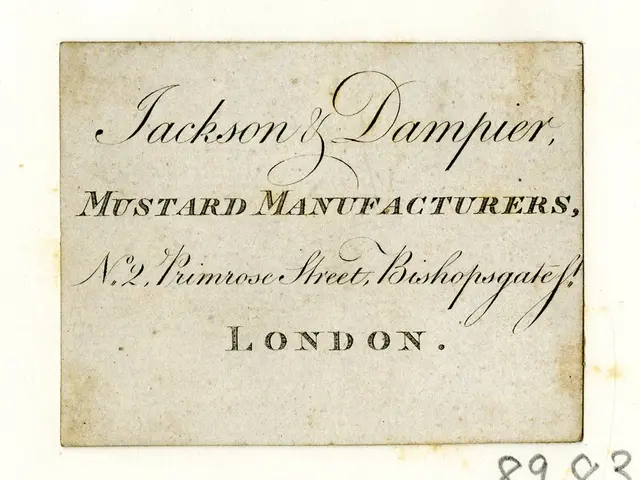 Jackson & Dampier,
MUSTARD MANUFACTURERS,
No. 2, Primrose Street, Bishopsgate St.
LONDON.